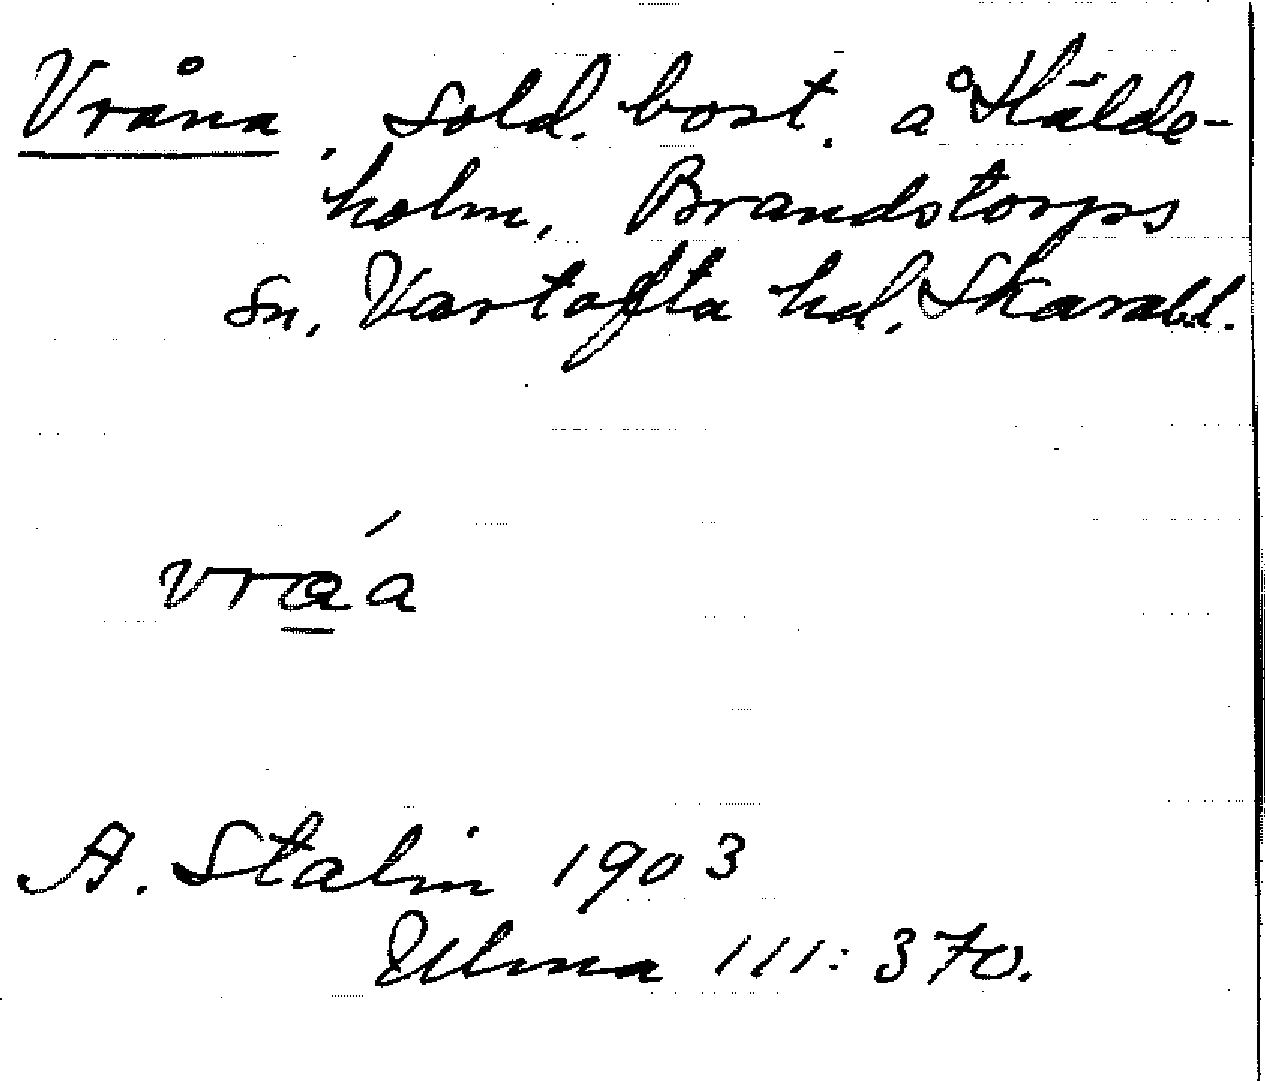 Vråna, sold. bost. å Hälde-
holm, Brandstorps
sn, Vartofta hd, Skarabl.
vra̲´a
A. Stalin 1903
Ulma 111:370.